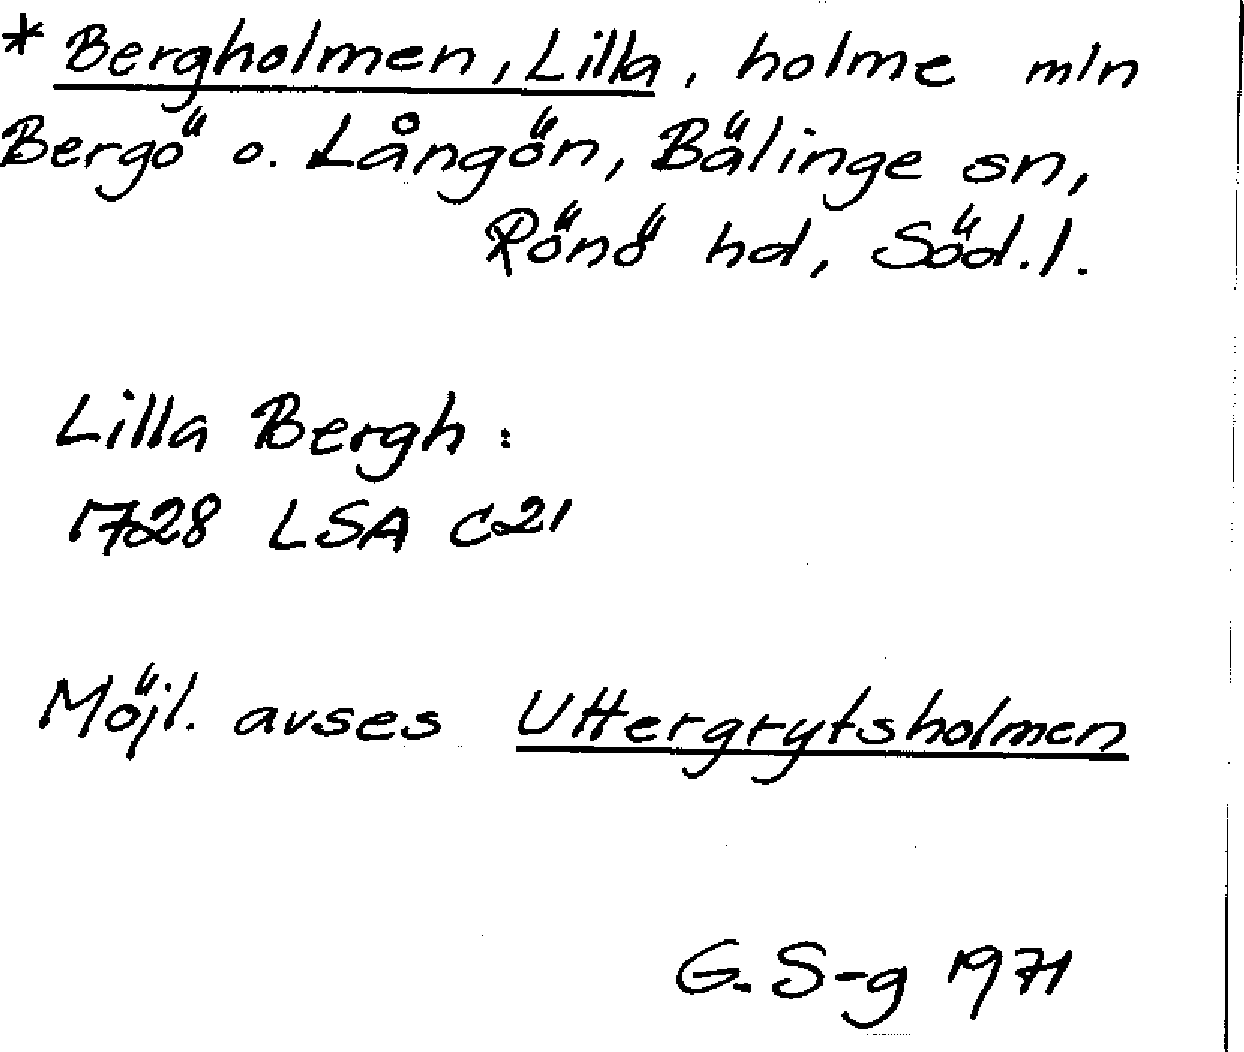 * Bergholmen, Lilla, holme mln
Bergö o. Långön, Bälinge sn,
Rönö hd, Söd.l.
Lilla Bergh:
1728 LSA C21
Möjl. avses Uttergrytsholmen
G. S-g 1971